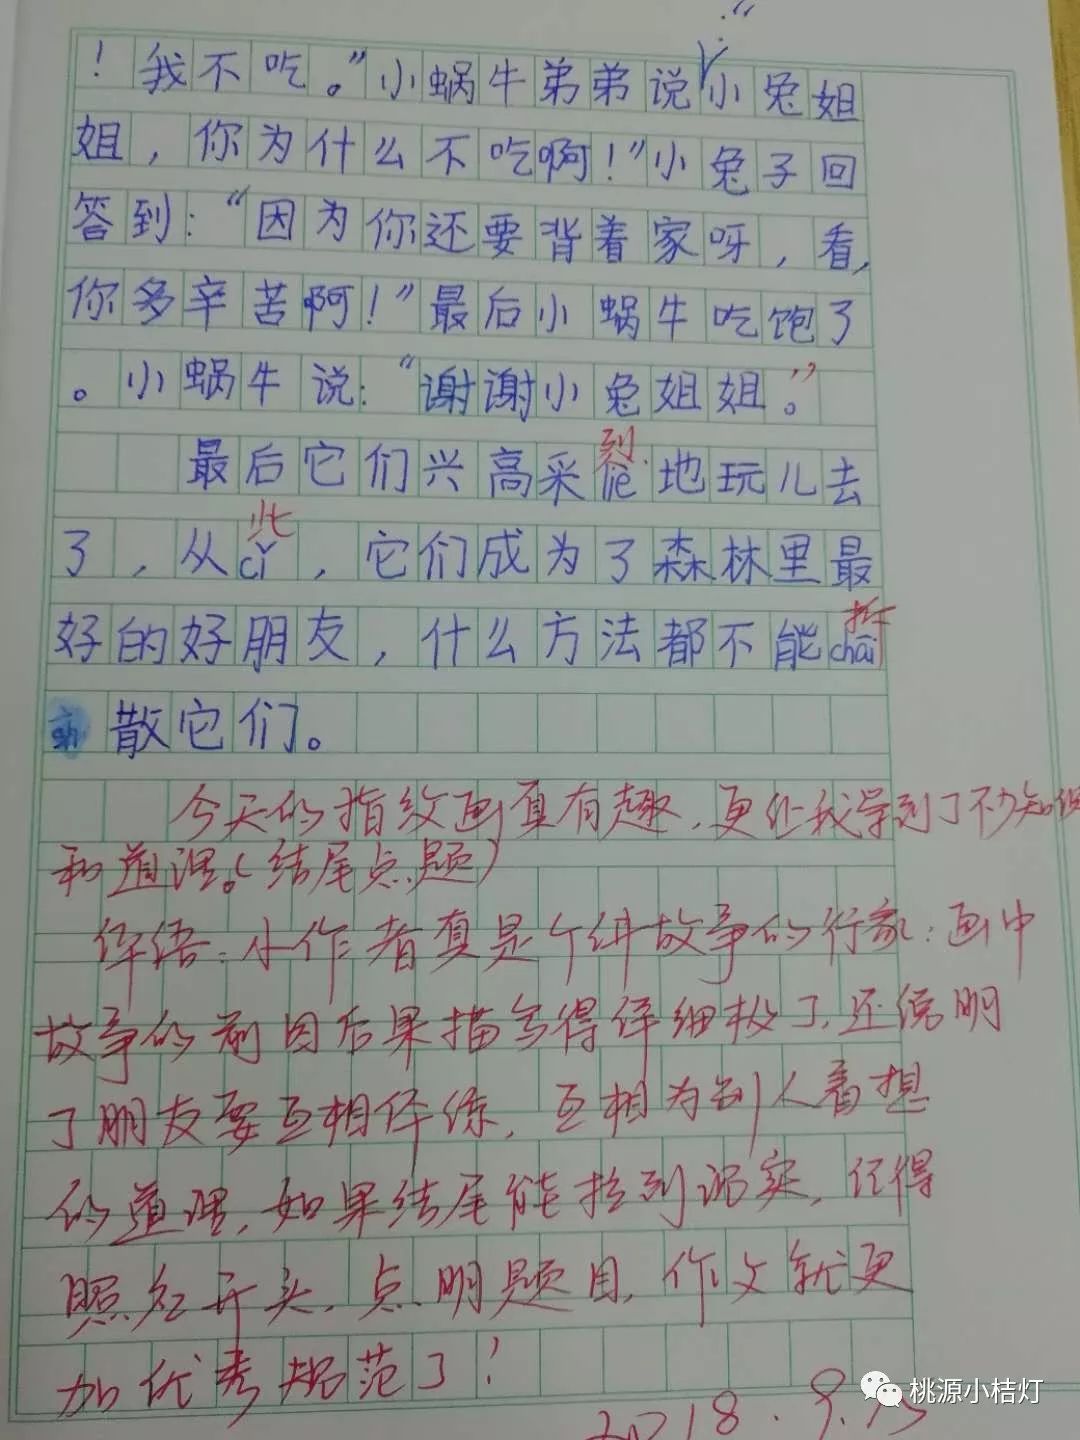 ！我不吃。”小蜗牛弟弟说：“小兔姐
姐，你为什么不吃啊！”小兔子回
答到：“因为你还要背着家呀，看，
你多辛苦啊！”最后小蜗牛吃饱了
。小蜗牛说：“谢谢小兔姐姐。”
最后它们兴高采liè烈地玩儿去
了，从cǐ此，它们成为了森林里最
好的好朋友，什么方法都不能chāi拆
散它们。
今天的指纹画真有趣，更让我学到了不少知识
和道理。（结尾点题）
评语：小作者真是个讲故事的行家：画中
故事的前因后果描写得详细极了，还说明
了朋友要互相体谅，互相为别人着想
的道理，如果结尾能拉到现实，记得
照应开头，点明题目，作文就更
加优秀规范了！
2018.9.15
桃源小桔灯